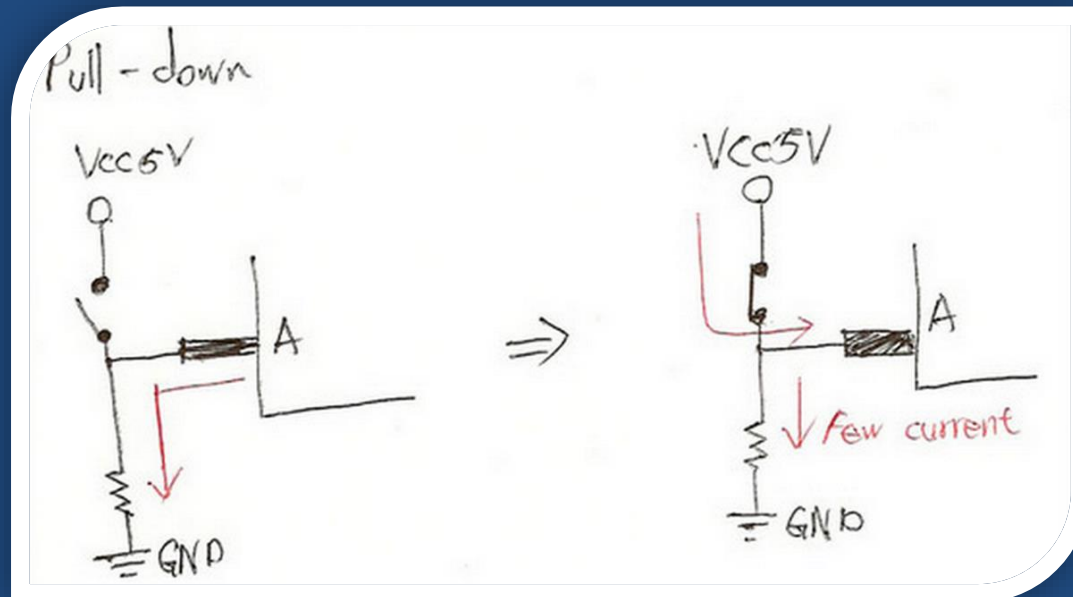 Pull-down
Vcc5V
A
GND
⇒
Vcc5V
A
Few current
GND